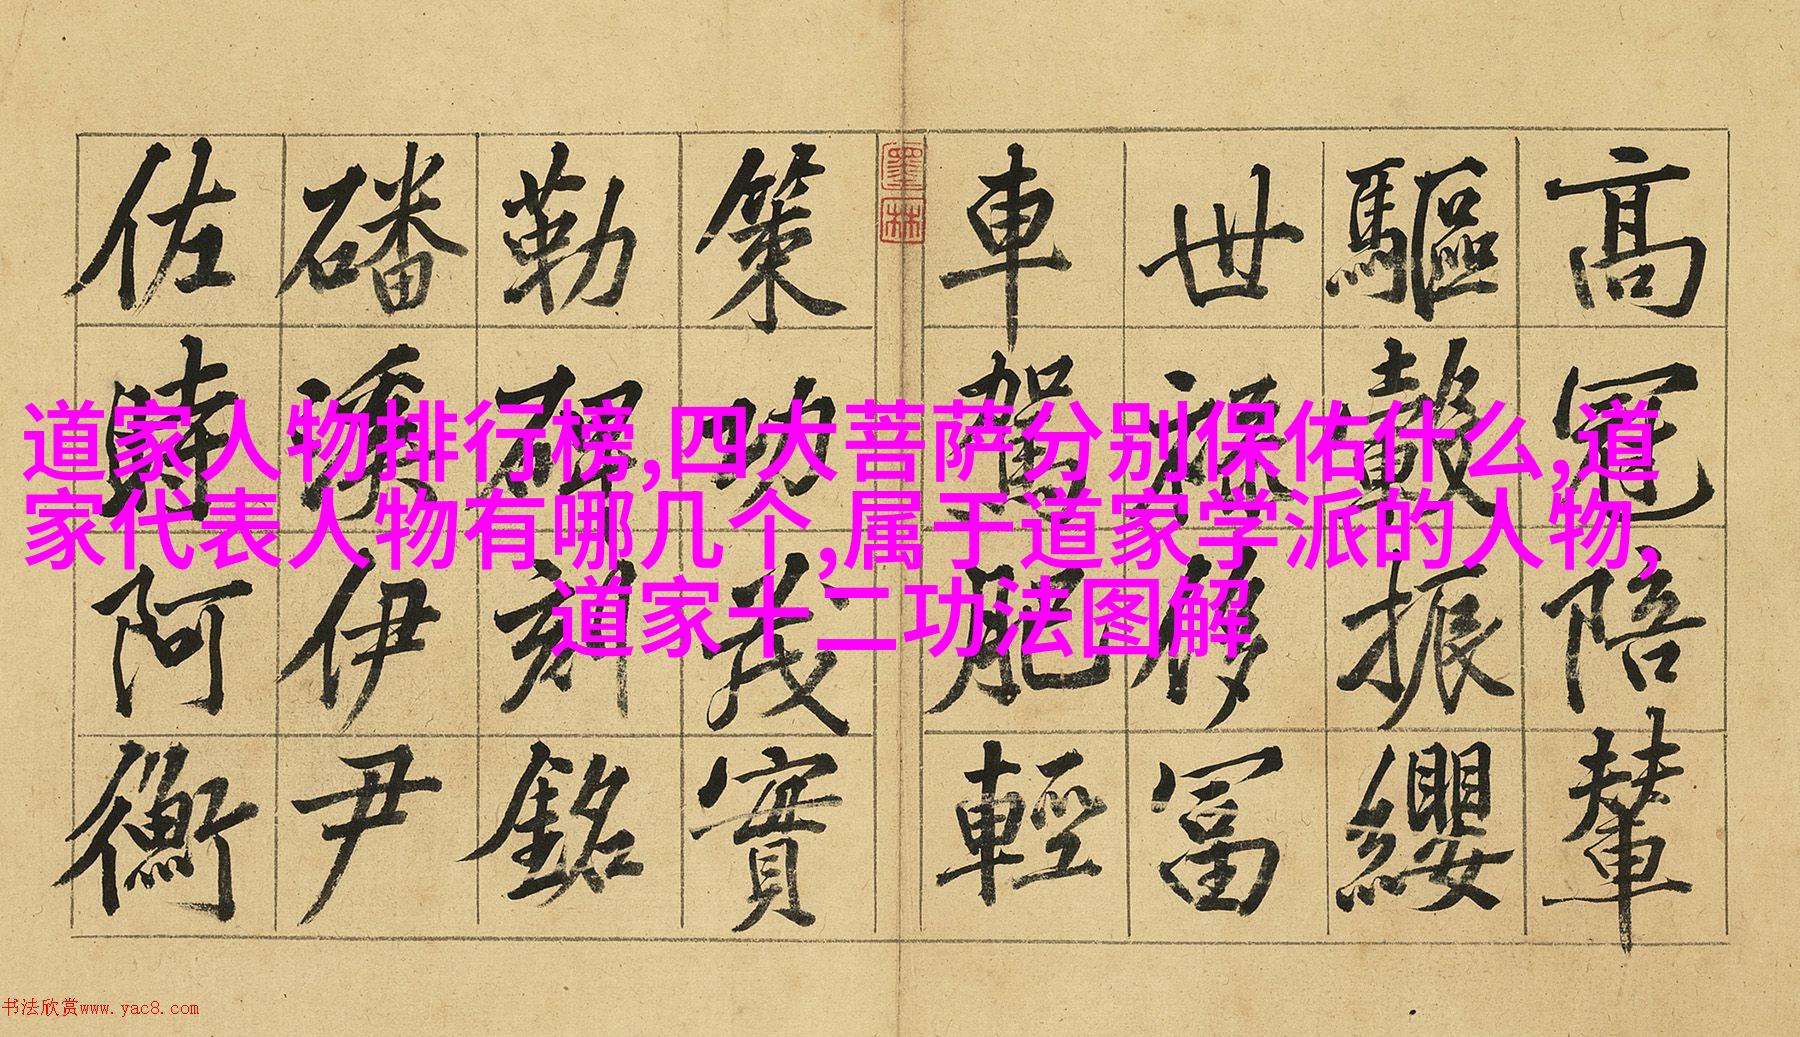 道家人物排行榜,四大菩萨分别保佑什么,道
家代表人物有哪几个,属于道家学派的人物,
道家十二功法图解
高冠陪輦
驅轂振纓
世祿侈富
車駕肥輕
墨林
策功茂實
勒碑刻銘
磻溪伊尹
佐時阿衡
书法欣赏www.yac8.com